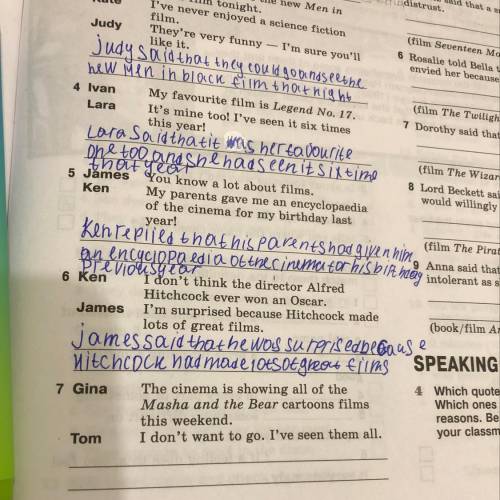 the new Men in
film tonight.
I've never enjoyed a science fiction
film.
Judy They're very funny — I'm sure you'll
like it.
judy said that they could go and see the
new Men in black film that night
4 Ivan My favourite film is Legend No. 17.
Lara It's mine too! I've seen it six times
this year!
Lara said that it was her favourite
one too and she had seen it six time
that year
5 James You know a lot about films.
Ken My parents gave me an encyclopaedia
of the cinema for my birthday last
year!
Ken replied that his parents had given him
an encyclopaedia of the cinema for his birthday
previous year
6 Ken I don't think the director Alfred
Hitchcock ever won an Oscar.
James I'm surprised because Hitchcock made
lots of great films.
james said that he was surprised because
Hitchcock had made lots of great films
7 Gina The cinema is showing all of the
Masha and the Bear cartoons films
this weekend.
Tom I don't want to go. I've seen them all.
said that a
distrust.
(film Seventeen Mo
6 Rosalie told Bella t
envied her because
(film The Twiligh
7 Dorothy said that
(film The Wizar
8 Lord Beckett sai
would willingly
(film The Pirat
9 Anna said tha
intolerant as s
(book/film An
SPEAKING
4 Which quote
Which ones
reasons. Be
your classm